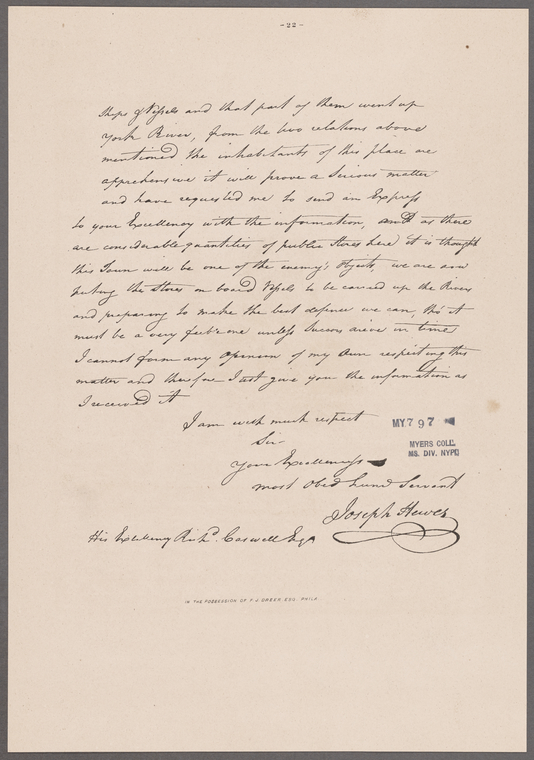 -22-
Ships & Vessels and that part of them went up
York River, from the two relations above
mentioned the inhabitants of this place are
apprehensive it will prove a serious matter
and have requested me to send an Express
to your Excellency with the information, and as there
are considerable quantities of public Stores here it is thought
this Town will be one of the enemy's Objects, we are now
puting the Stores on board Vessels to be carried up the River
and preparing to make the best defence we can, tho' it
must be a very feeble one unless Succors arive in time
I cannot form any Opinion of my Own respecting this
matter and therefore I just give you the information as
I received it
I am with much respect
Sir
Your Excellency's
most Obed Hum Servant
Joseph Hewes
His Excellency Richd. Caswell Esqr
MY 7 97
MYERS COLL.
MS. DIV. NYPL
IN THE POSSESSION OF F. J. DREER, ESQ. PHILA.